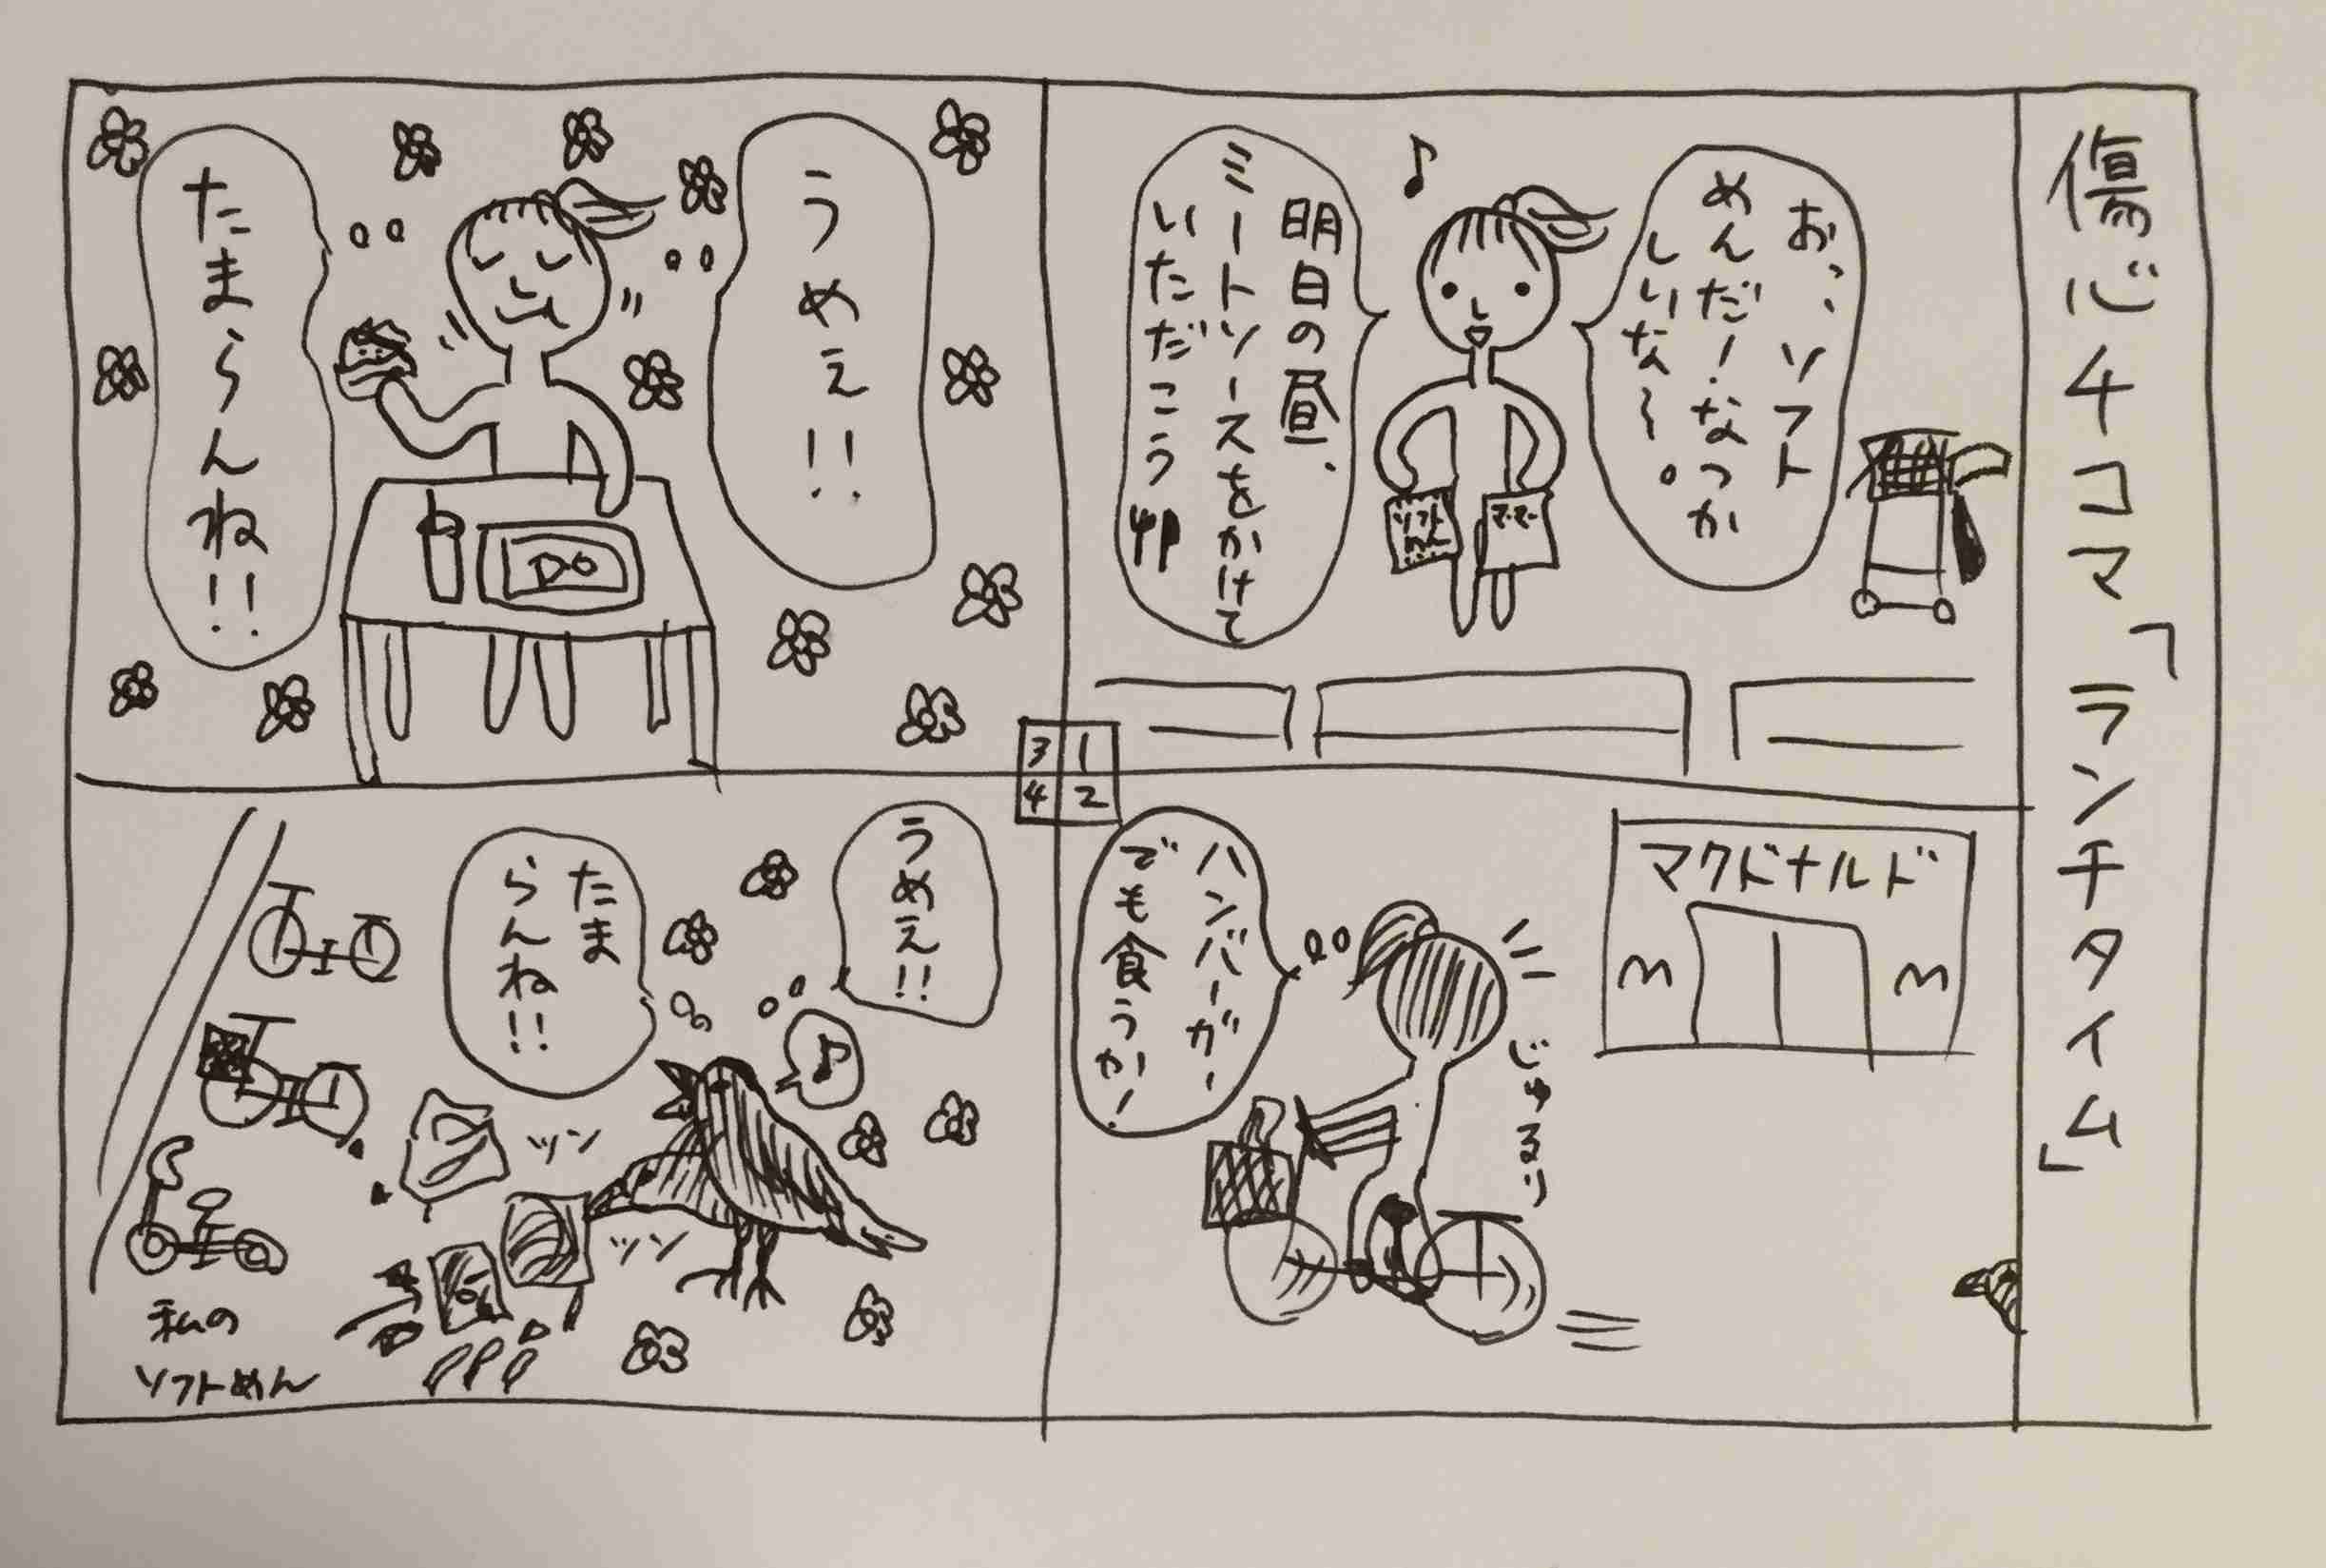 傷心4コマ「ランチタイム」
おっ、ソフト
めんだ！なつか
しいな〜。
明日の昼、
ミートソースをかけて
いただこう
ソフト
めん
マ・マー
マクドナルド
M
M
ハンバーガー
でも食うか！
じゅるり
うめぇ!!
たまらんね!!
DO
3 1
4 2
うめえ!!
たま
らんね!!
ツン
ツン
私の
ソフトめん